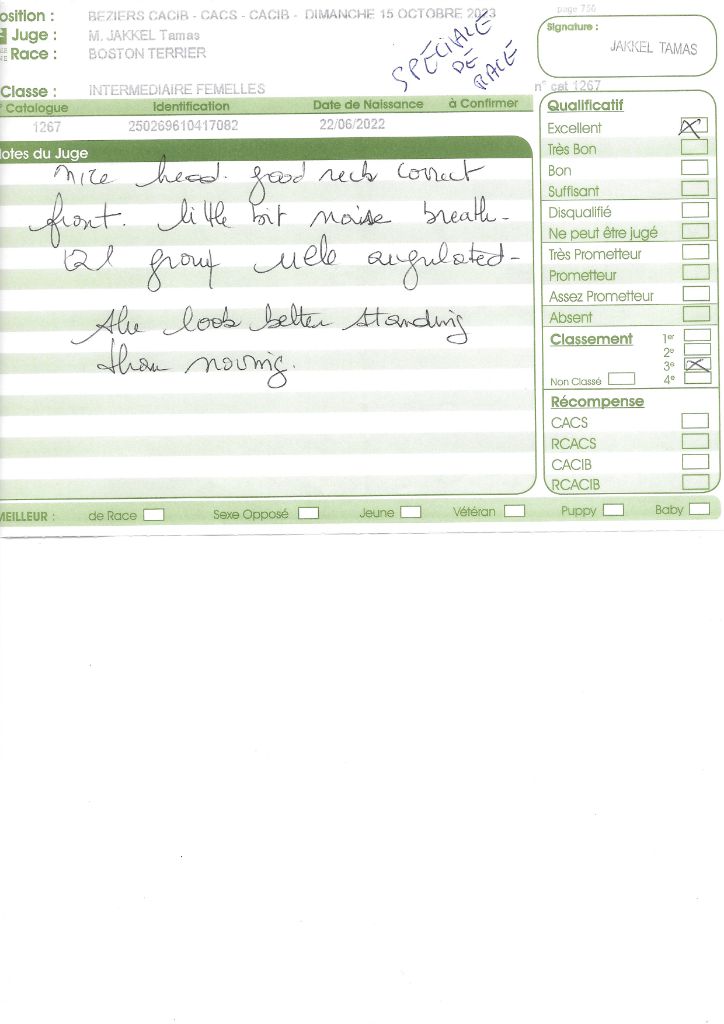 osition : BEZIERS CACIB - CACS - CACIB - DIMANCHE 15 OCTOBRE 2023
Juge : M. JAKKEL Tamas
Race : BOSTON TERRIER
SPÉCIALE
DE
RACE
Classe : INTERMEDIAIRE FEMELLES
page 756
Signature :
JAKKEL TAMAS
n° cat 1267
° Catalogue Identification Date de Naissance à Confirmer
1267 250269610417082 22/06/2022
otes du Juge
nice head. good neck correct
front. little bit noise breath-
group well angulated-
she look better standing
than moving.
Qualificatif
Excellent X
Très Bon
Bon
Suffisant
Disqualifié
Ne peut être jugé
Très Prometteur
Prometteur
Assez Prometteur
Absent
Classement 1er
2e
3e X
Non Classé 4e
Récompense
CACS
RCACS
CACIB
RCACIB
MEILLEUR : de Race Sexe Opposé Jeune Vétéran Puppy Baby